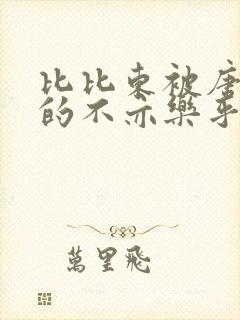 比比东被唐
的不亦樂乎
萬里飛